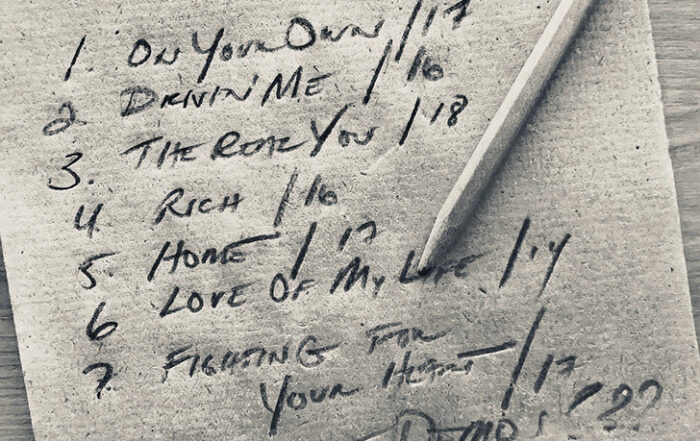 1. ON YOUR OWN / 17
2. DRIVIN' ME / 16
3. THE REAL YOU / 18
4 RICH / 16
5. HOME / 17
6 LOVE OF MY LIFE / 14
7. FIGHTING FOR
YOUR HEART / 17
DEMOS ???